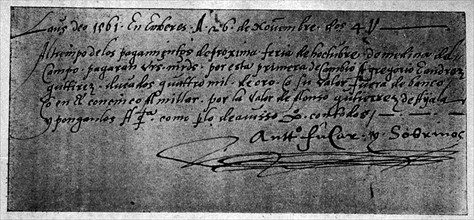 Laus deo 1561 En Enberes A 26 de Novienbre dos 4 V
Al tienpo de los pagamentos de proxima feria de hochubre de medina del
Campo pagaran vrs mrds por esta primera de Canbio a Gregorio Landrez
gutierrez ducados quatro mil de oro o su Valor fuera de banco
en el al millar por la Valor de Alonso gutierrez de ayala
y ponganlos A qta como plo de avisso contados
Antto fucar y Sobrinos